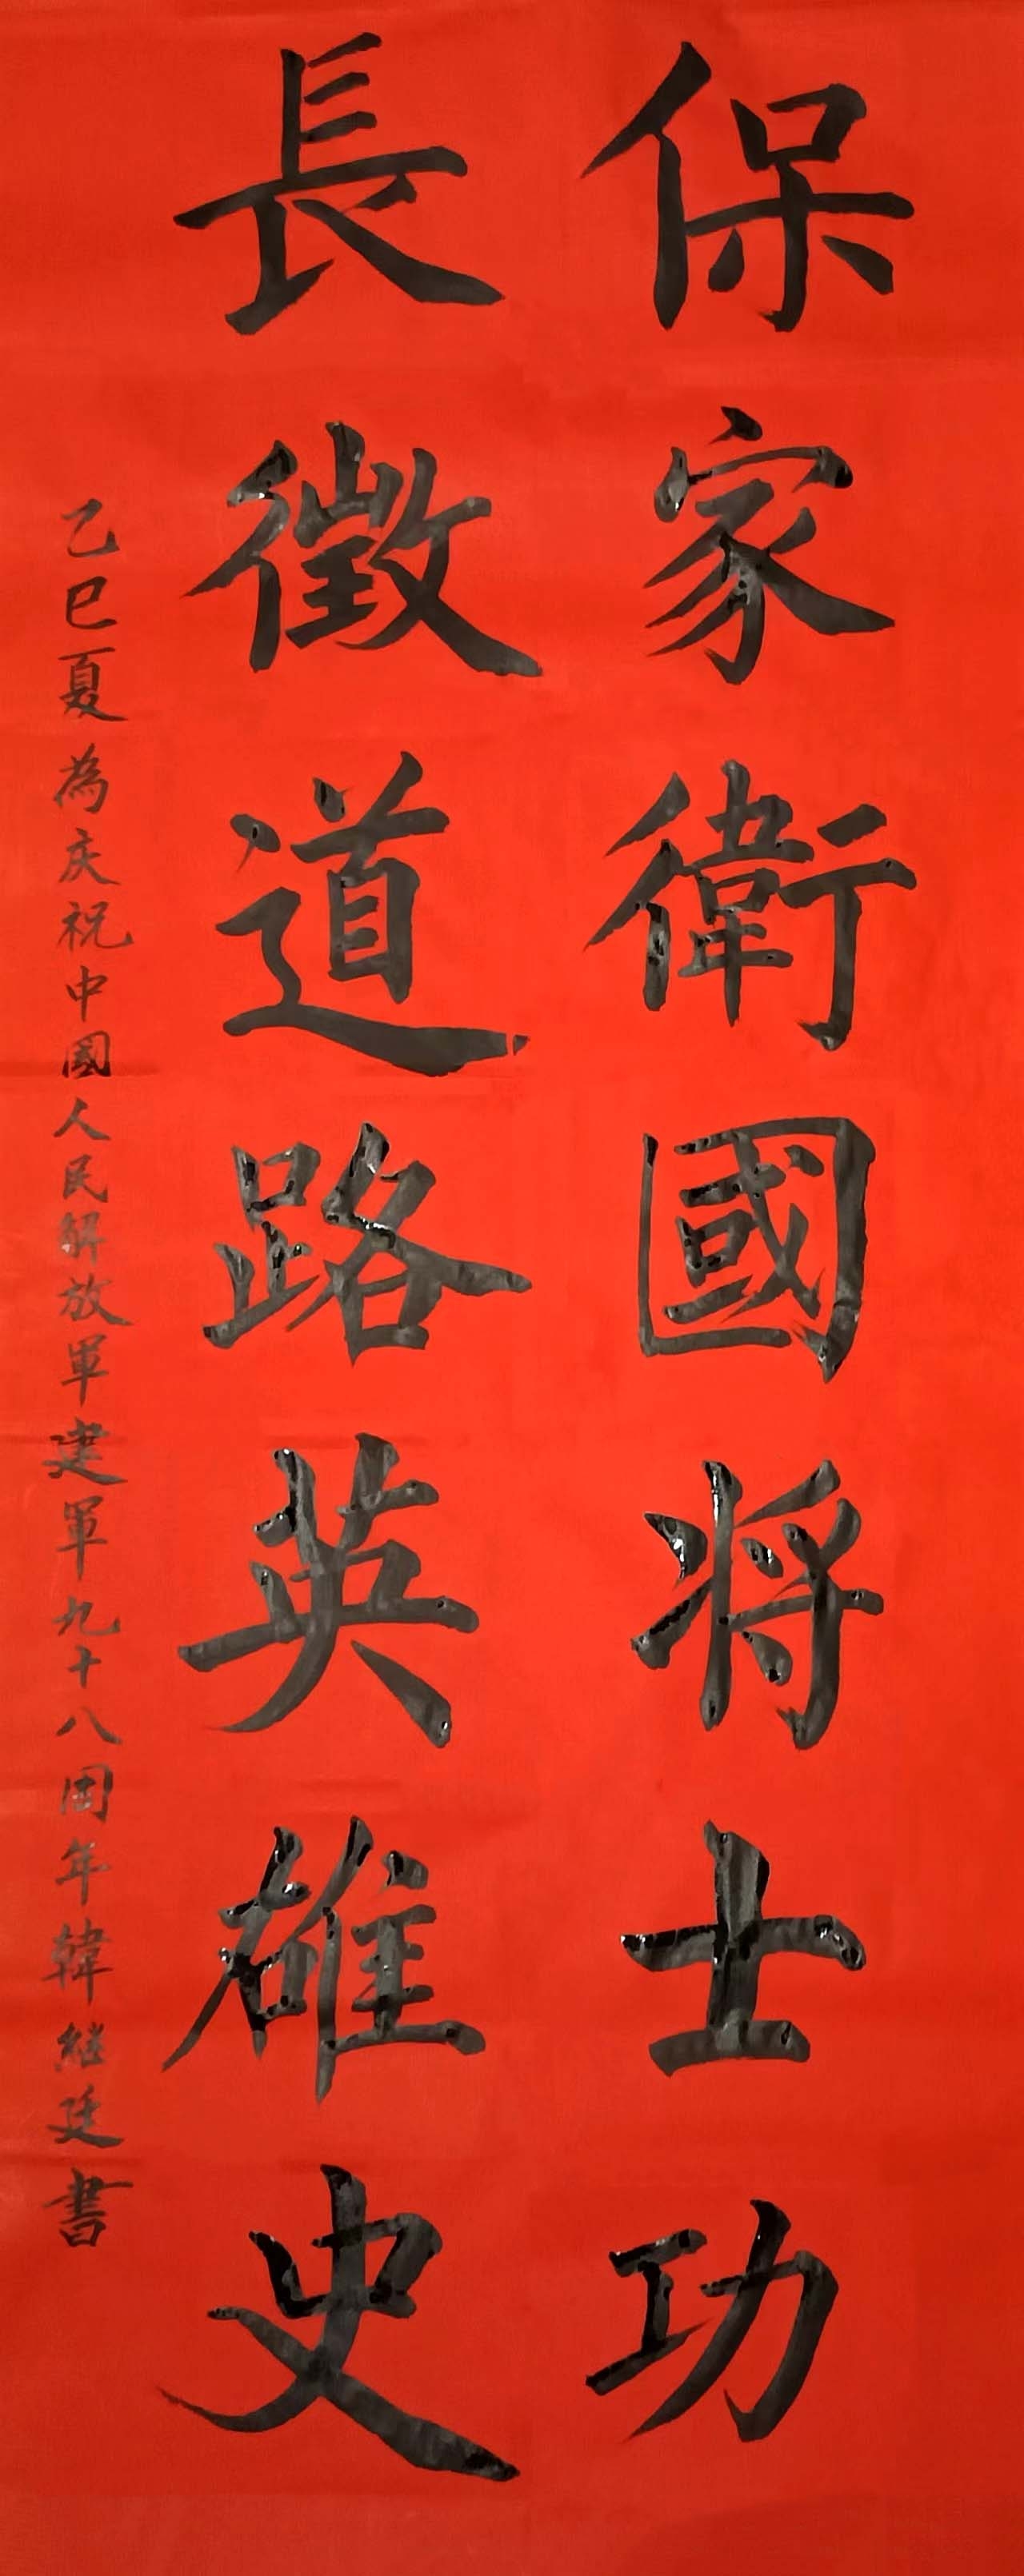 保家衛國將士功
長徵道路英雄史
乙巳夏為庆祝中國人民解放軍建軍九十八周年韓继廷書